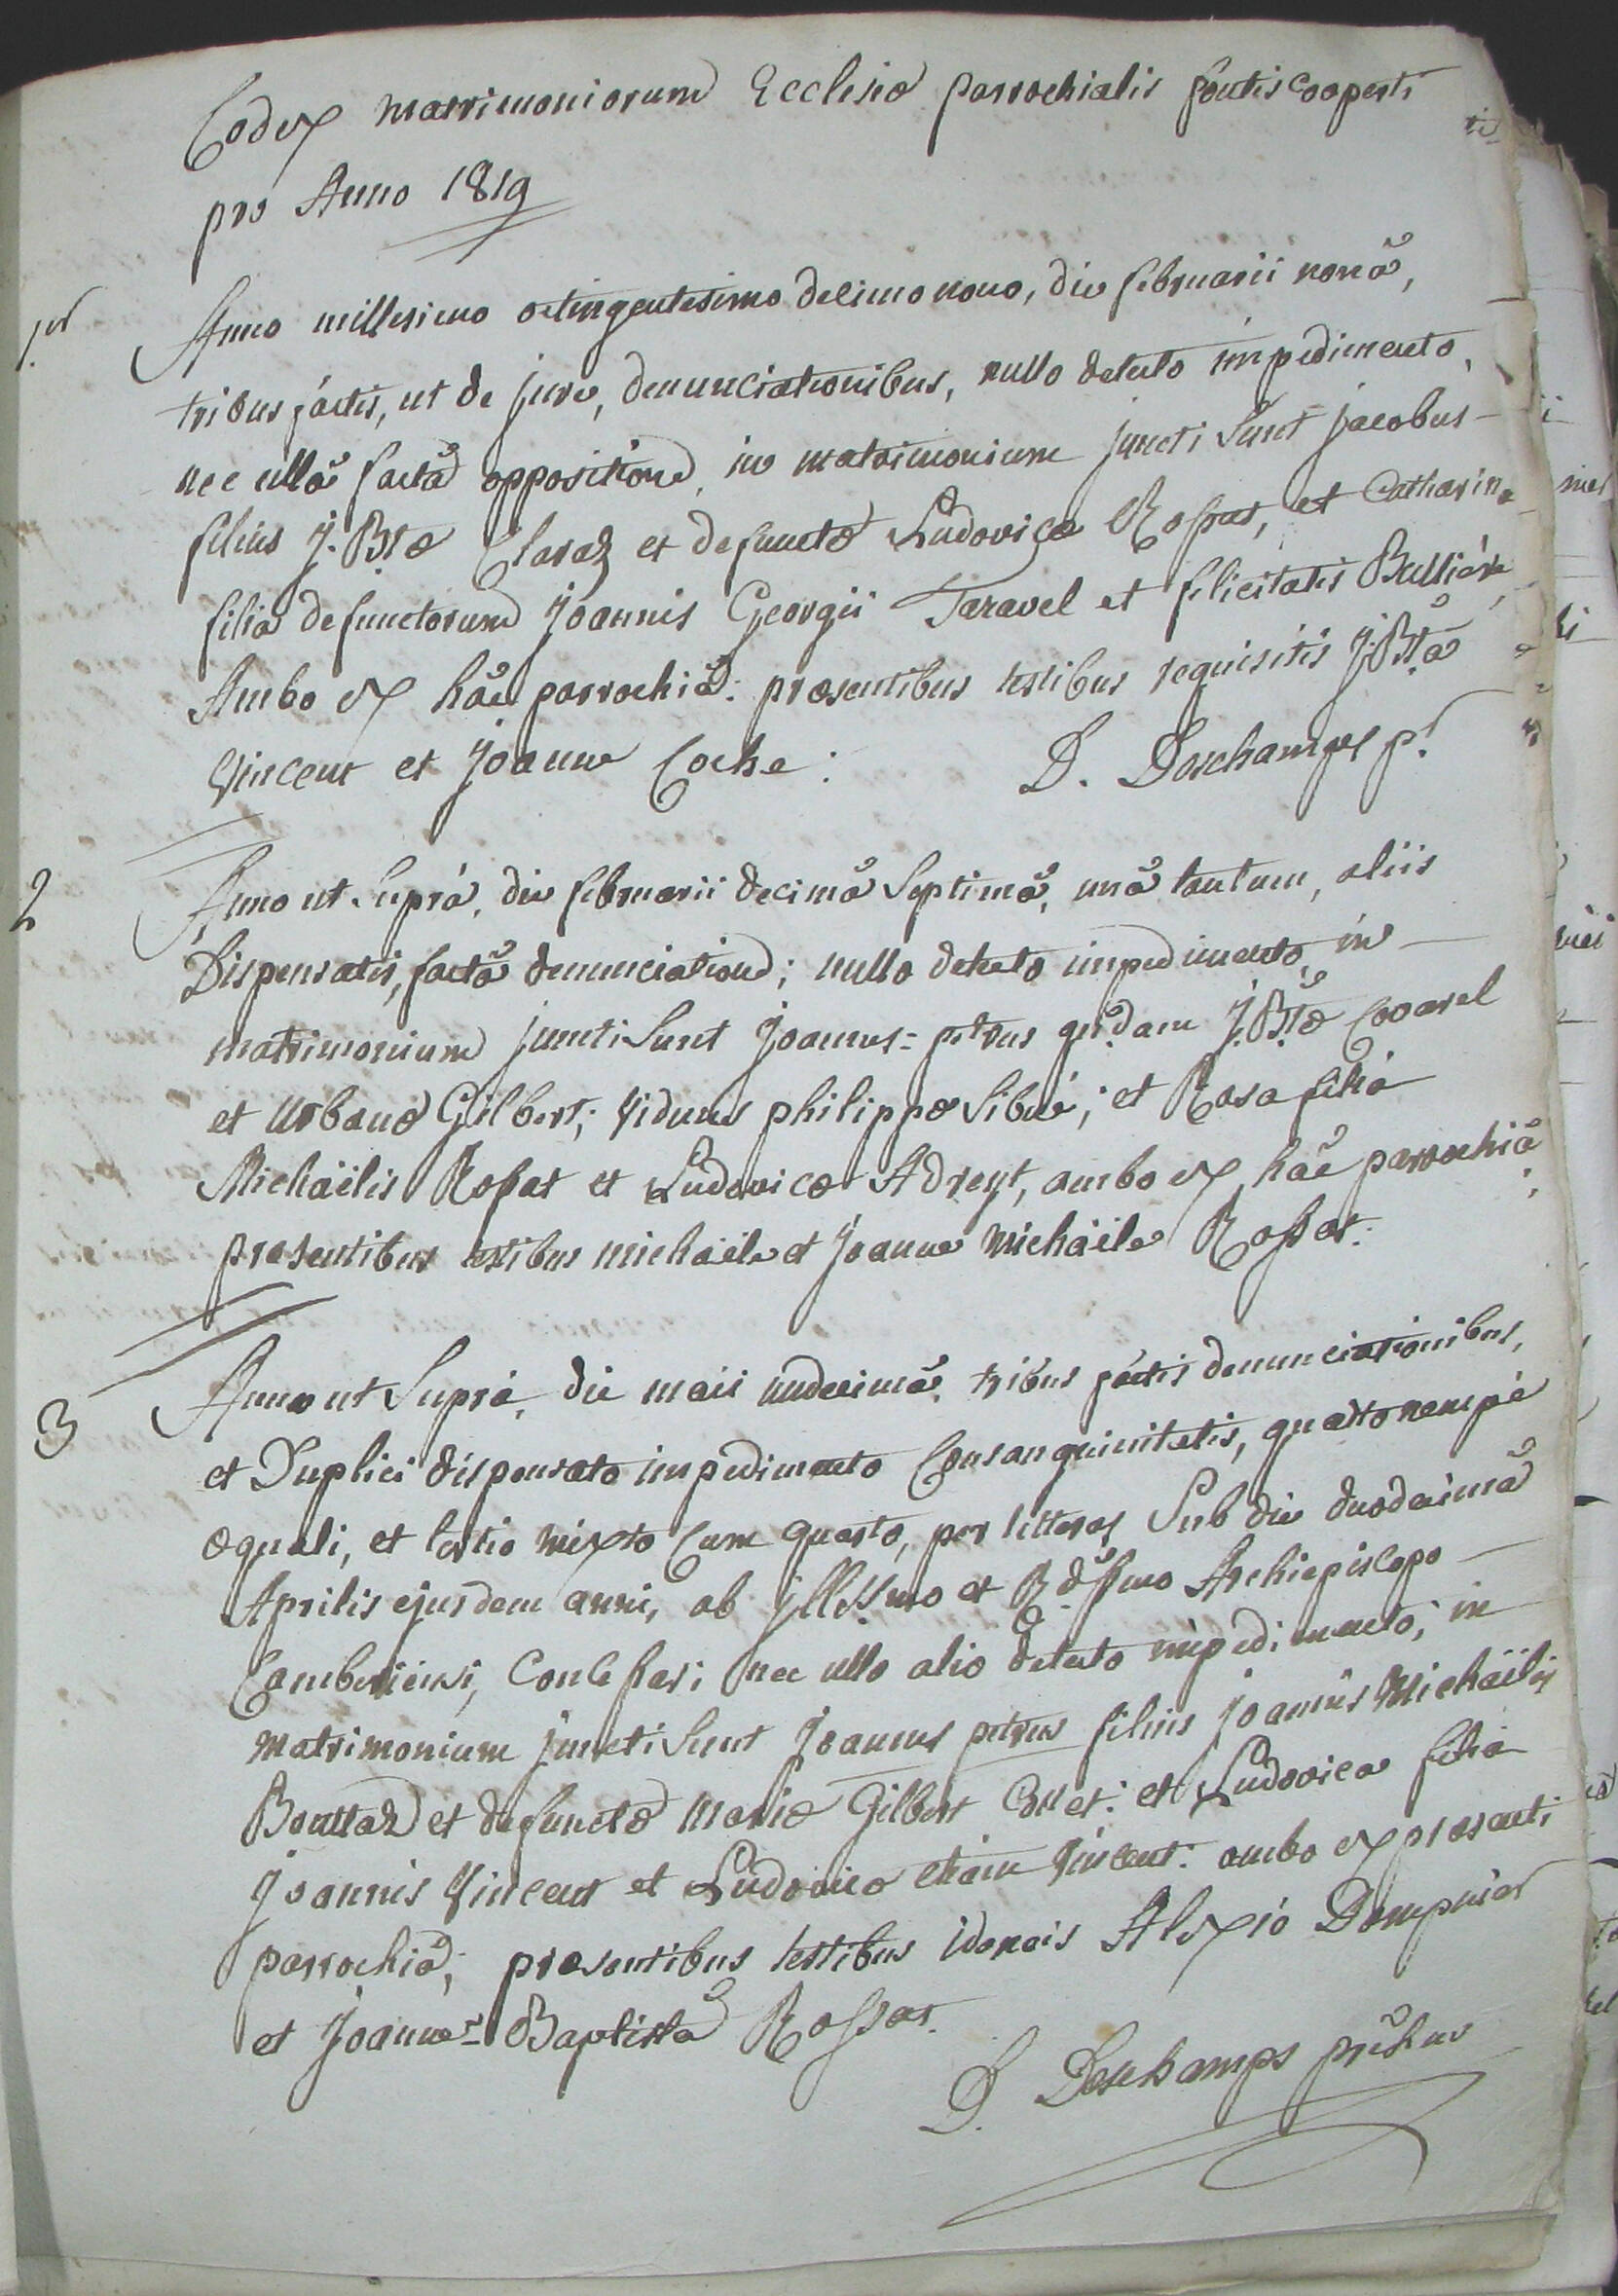 Codex matrimoniorum Ecclesiæ parrochialis fontis cooperti
pro Anno 1819
1us Anno millesimo octingentesimo decimo nono, die februarii nonâ,
tribus factis, ut de jure, denunciationibus, nullo detecto impedimento,
nec ullâ factâ oppositione, in matrimonium juncti sunt jacobus
filius J. Btæ Claraz et defunctæ Ludovicæ Rossat, et Catharina
filia defunctorum Joannis Georgii Taravel et felicitatis
Ambo ex hâc parrochiâ: præsentibus testibus requisitis J: Btâ
Vincent et Joanne Coche: D. Deschamps pr
2 Anno ut suprà, die februarii decimâ septimâ, unâ tantum, aliis
Dispensatis, factâ denunciatione; nullo detecto impedimento, in
matrimonium juncti sunt Joannes-petrus J. Btæ
et Urbanæ Gilbert, viduus philippæ Sibué; et Rosa filia
Michaëlis Rossat et Ludovicæ Adreyt, ambo ex hâc parrochiâ
præsentibus testibus michaële et Joanne Michaële Rossat.
3 Anno ut suprà, die maii undecimâ, tribus factis denunciationibus,
et Duplici dispensato impedimento Consanguinitatis, quarto nempè
æquali, et tertio mixto cum quarto, per litteras sub die duodecimâ
Aprilis ejusdem anni, ab illssmo et Rdssmo Archiepiscopo
Camberiensi, nec ullo alio detecto impedimento; in
matrimonium juncti sunt Joannes petrus filius joannis Michaëlis
Bouttaz et defunctæ mariæ Gilbert et Ludovica filia
Joannis Vincent et Ludovicæ etiam Vincent: ambo ex præsenti
parrochiâ; præsentibus testibus idoneis Alexio Dompnier
et Joanne-Baptistâ Rossat.
D. Deschamps